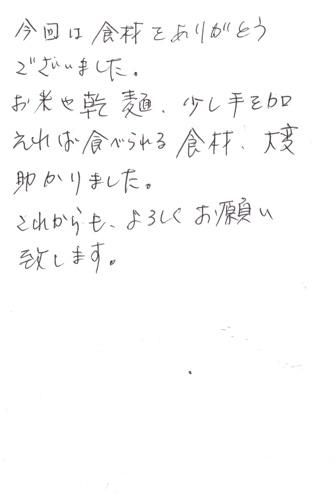 今回は食材をありがとう
ございました。
お米や乾麺、少し手を加
えれば食べられる食材、大変
助かりました。
これからも、よろしくお願い
致します。